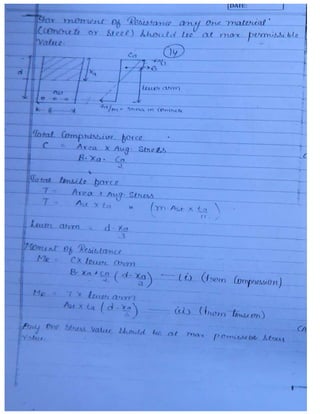 DATE:
For moment of Resistance any one material
(concrete or Steel) should be at max permissible
value.
14
Ca
d
xa
Ast
B
lever arm
ta/m = stress in concrete
Total Compressive force
C = Area x Avg. Stress
B. xa. Ca/2
Total tensile force
T = Area x Avg. Stress
T = Ast x ta = (m Ast x ta
Lever arm = d - xa/3
Moment of Resistance
MR = C x lever arm
B. xa x Ca/2 (d - xa/3) — (i) (from Compression)
MR = T x lever arm
Ast x ta (d - xa/3) — (ii) (from tension)
Any one stress value should be at max permissible stress
value.